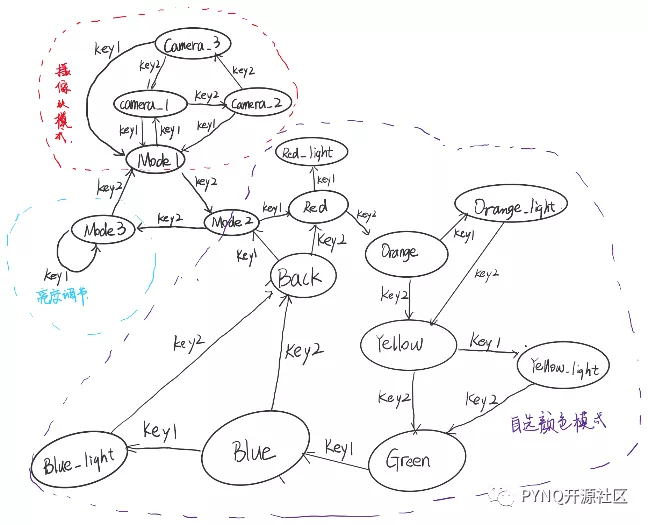 key1
Camera_3
key2
key2
摄像头模式
camera_1
key2
Camera_2
key1
key1
key1
Mode1
Red_light
key2
key2
key1
Mode3
key2
Mode2
key1
Red
key2
Orange_light
key1
Orange
key1
亮度调节
key1
key2
Back
key2
key2
Yellow
Key1
Yellow_light
key2
key2
key2
key2
自选颜色模式
Blue_light
Key1
Blue
Key1
Green
PYNQ开源社区